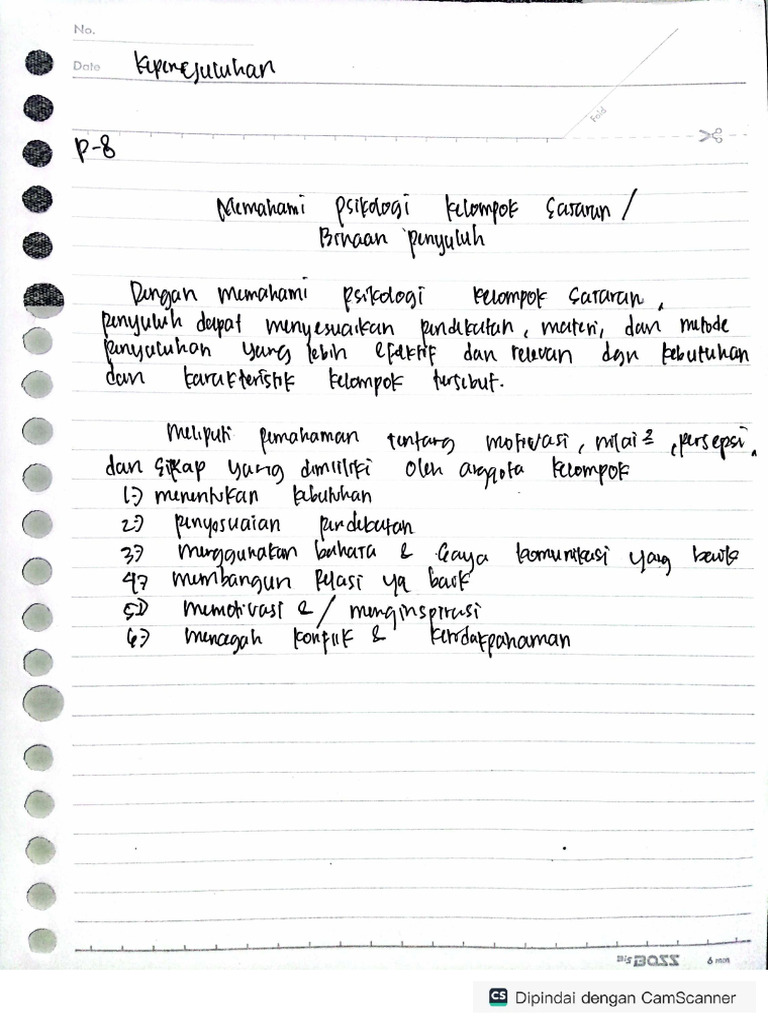 No.
Date Kepenyuluhan
Fold
P-8
Memahami psikologi kelompok sasaran /
Binaan penyuluh
Dengan memahami psikologi kelompok sasaran,
penyuluh dapat menyesuaikan pendekatan, materi, dan metode
penyuluhan yang lebih efektif dan relevan dgn kebutuhan
dan karakteristik kelompok tersebut.
Meliputi pemahaman tentang motivasi, nilai², persepsi,
dan sikap yang dimiliki oleh anggota kelompok
1.) menentukan kebutuhan
2.) penyesuaian pendekatan
3.) menggunakan bahasa & Gaya komunikasi yang baik
4.) membangun Relasi yg baik
5.) memotivasi & / menginspirasi
6.) mencegah konflik & ketidakpahaman
Big BOSS 6 mm
CS Dipindai dengan CamScanner